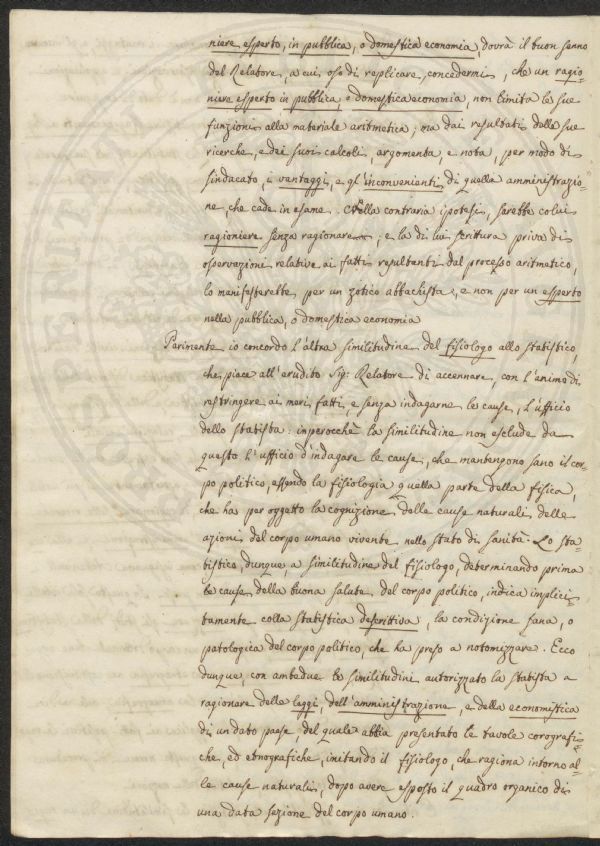 niere esperto, in pubblica, o domestica economia, dovrà il buon senno
del Relatore, a cui oso di replicare, concedermi, che un ragio-
niere esperto in pubblica, o domestica economia, non limita le sue
funzioni alla materiale aritmetica; ma dai resultati delle sue
ricerche, e dei suoi calcoli, argomenta, e nota, per modo di
sindacato, i vantaggi, e gl'inconvenienti di quella amministrazio-
ne, che cade in esame. Nella contraria ipotesi, sarebbe colui
ragioniere senza ragionare; e la di lui scrittura priva di
osservazioni relative ai fatti resultanti dal processo aritmetico,
lo manifesterebbe per un zotico abbachista, e non per un esperto
nella pubblica, o domestica economia
Parimente io concordo l'altra similitudine del fisiologo allo statistico,
che piace all'erudito Sig: Relatore di accennare, con l'animo di
restringere ai meri fatti, e senza indagarne le cause, l'ufficio
dello statista: imperocchè la similitudine non esclude da
questo l'ufficio d'indagare le cause, che mantengono sano il cor-
po politico, essendo la fisiologia quella parte della fisica,
che ha per oggetto la cognizione delle cause naturali delle
azioni del corpo umano vivente nello stato di sanità. Lo sta-
tistico, dunque, a similitudine del fisiologo, determinando prima
le cause della buona salute del corpo politico, indica implici-
tamente colla statistica descrittiva, la condizione sana, o
patologica del corpo politico, che ha preso a notomizzare. Ecco
dunque, con ambedue le similitudini autorizzato lo statista a
ragionare delle leggi, dell'amministrazione, e della economistica
di un dato paese, del quale abbia presentato le tavole corografi-
che, ed etnografiche, imitando il fisiologo che ragiona intorno al-
le cause naturali, dopo avere esposto il quadro organico di
una data sezione del corpo umano.